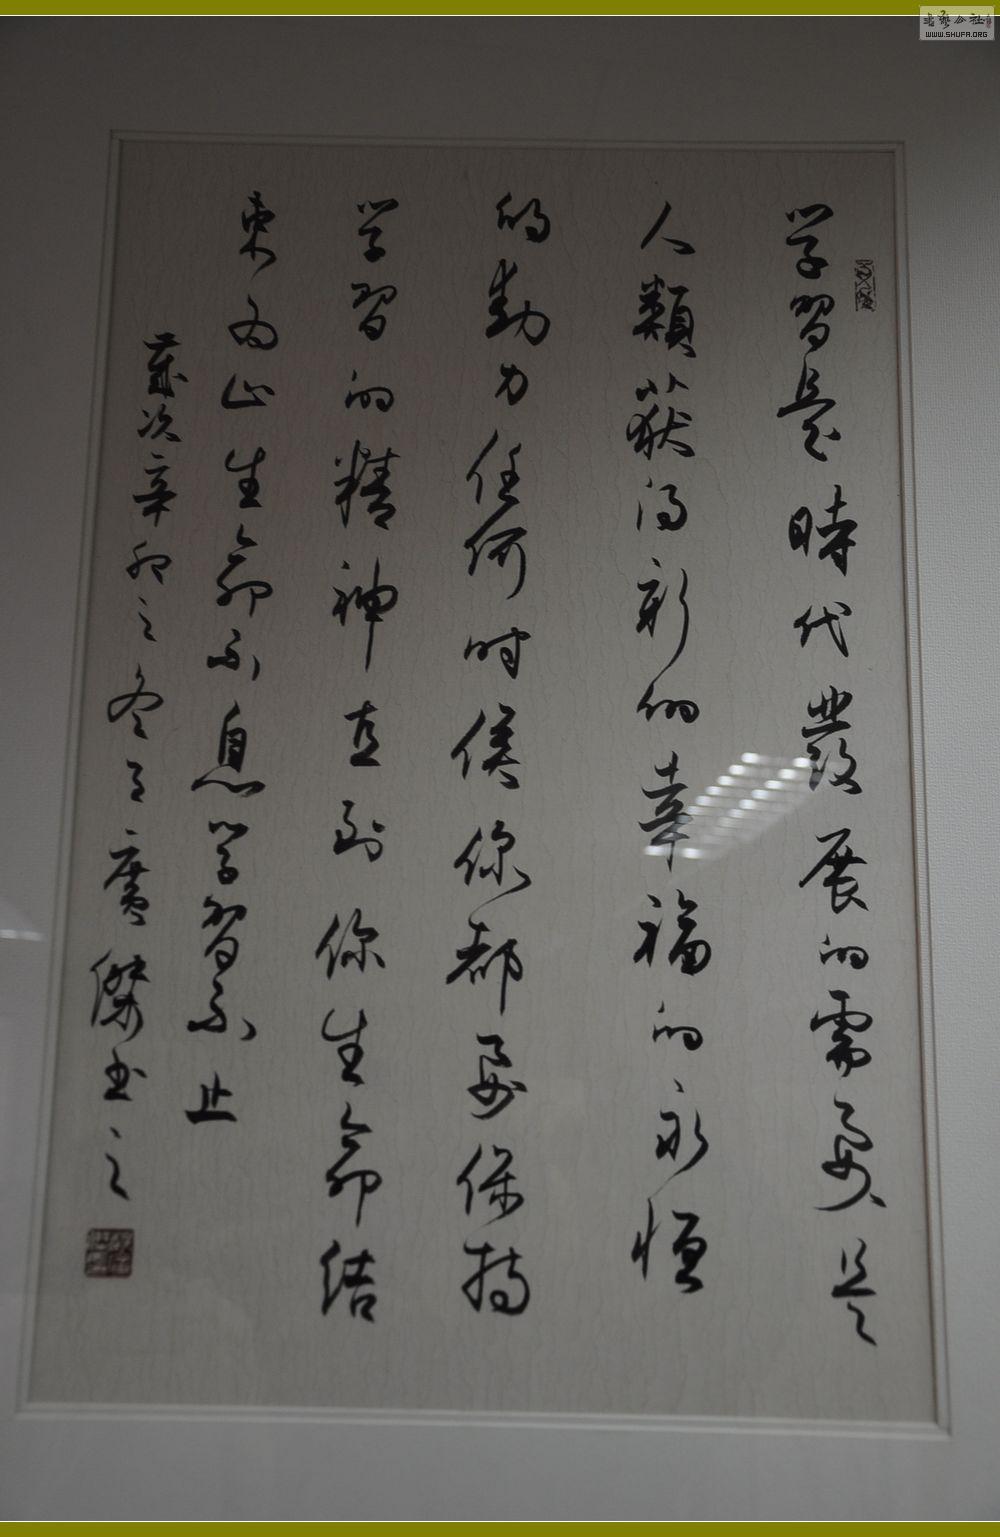 学習是時代發展的需要是
人類获得新的幸福的永恒
的動力任何时候你都要保持
学習的精神直到你生命结
束为止生命不息学習不止
歲次辛卯之冬月廣傑书之
書藝公社
WWW.SHUFA.ORG